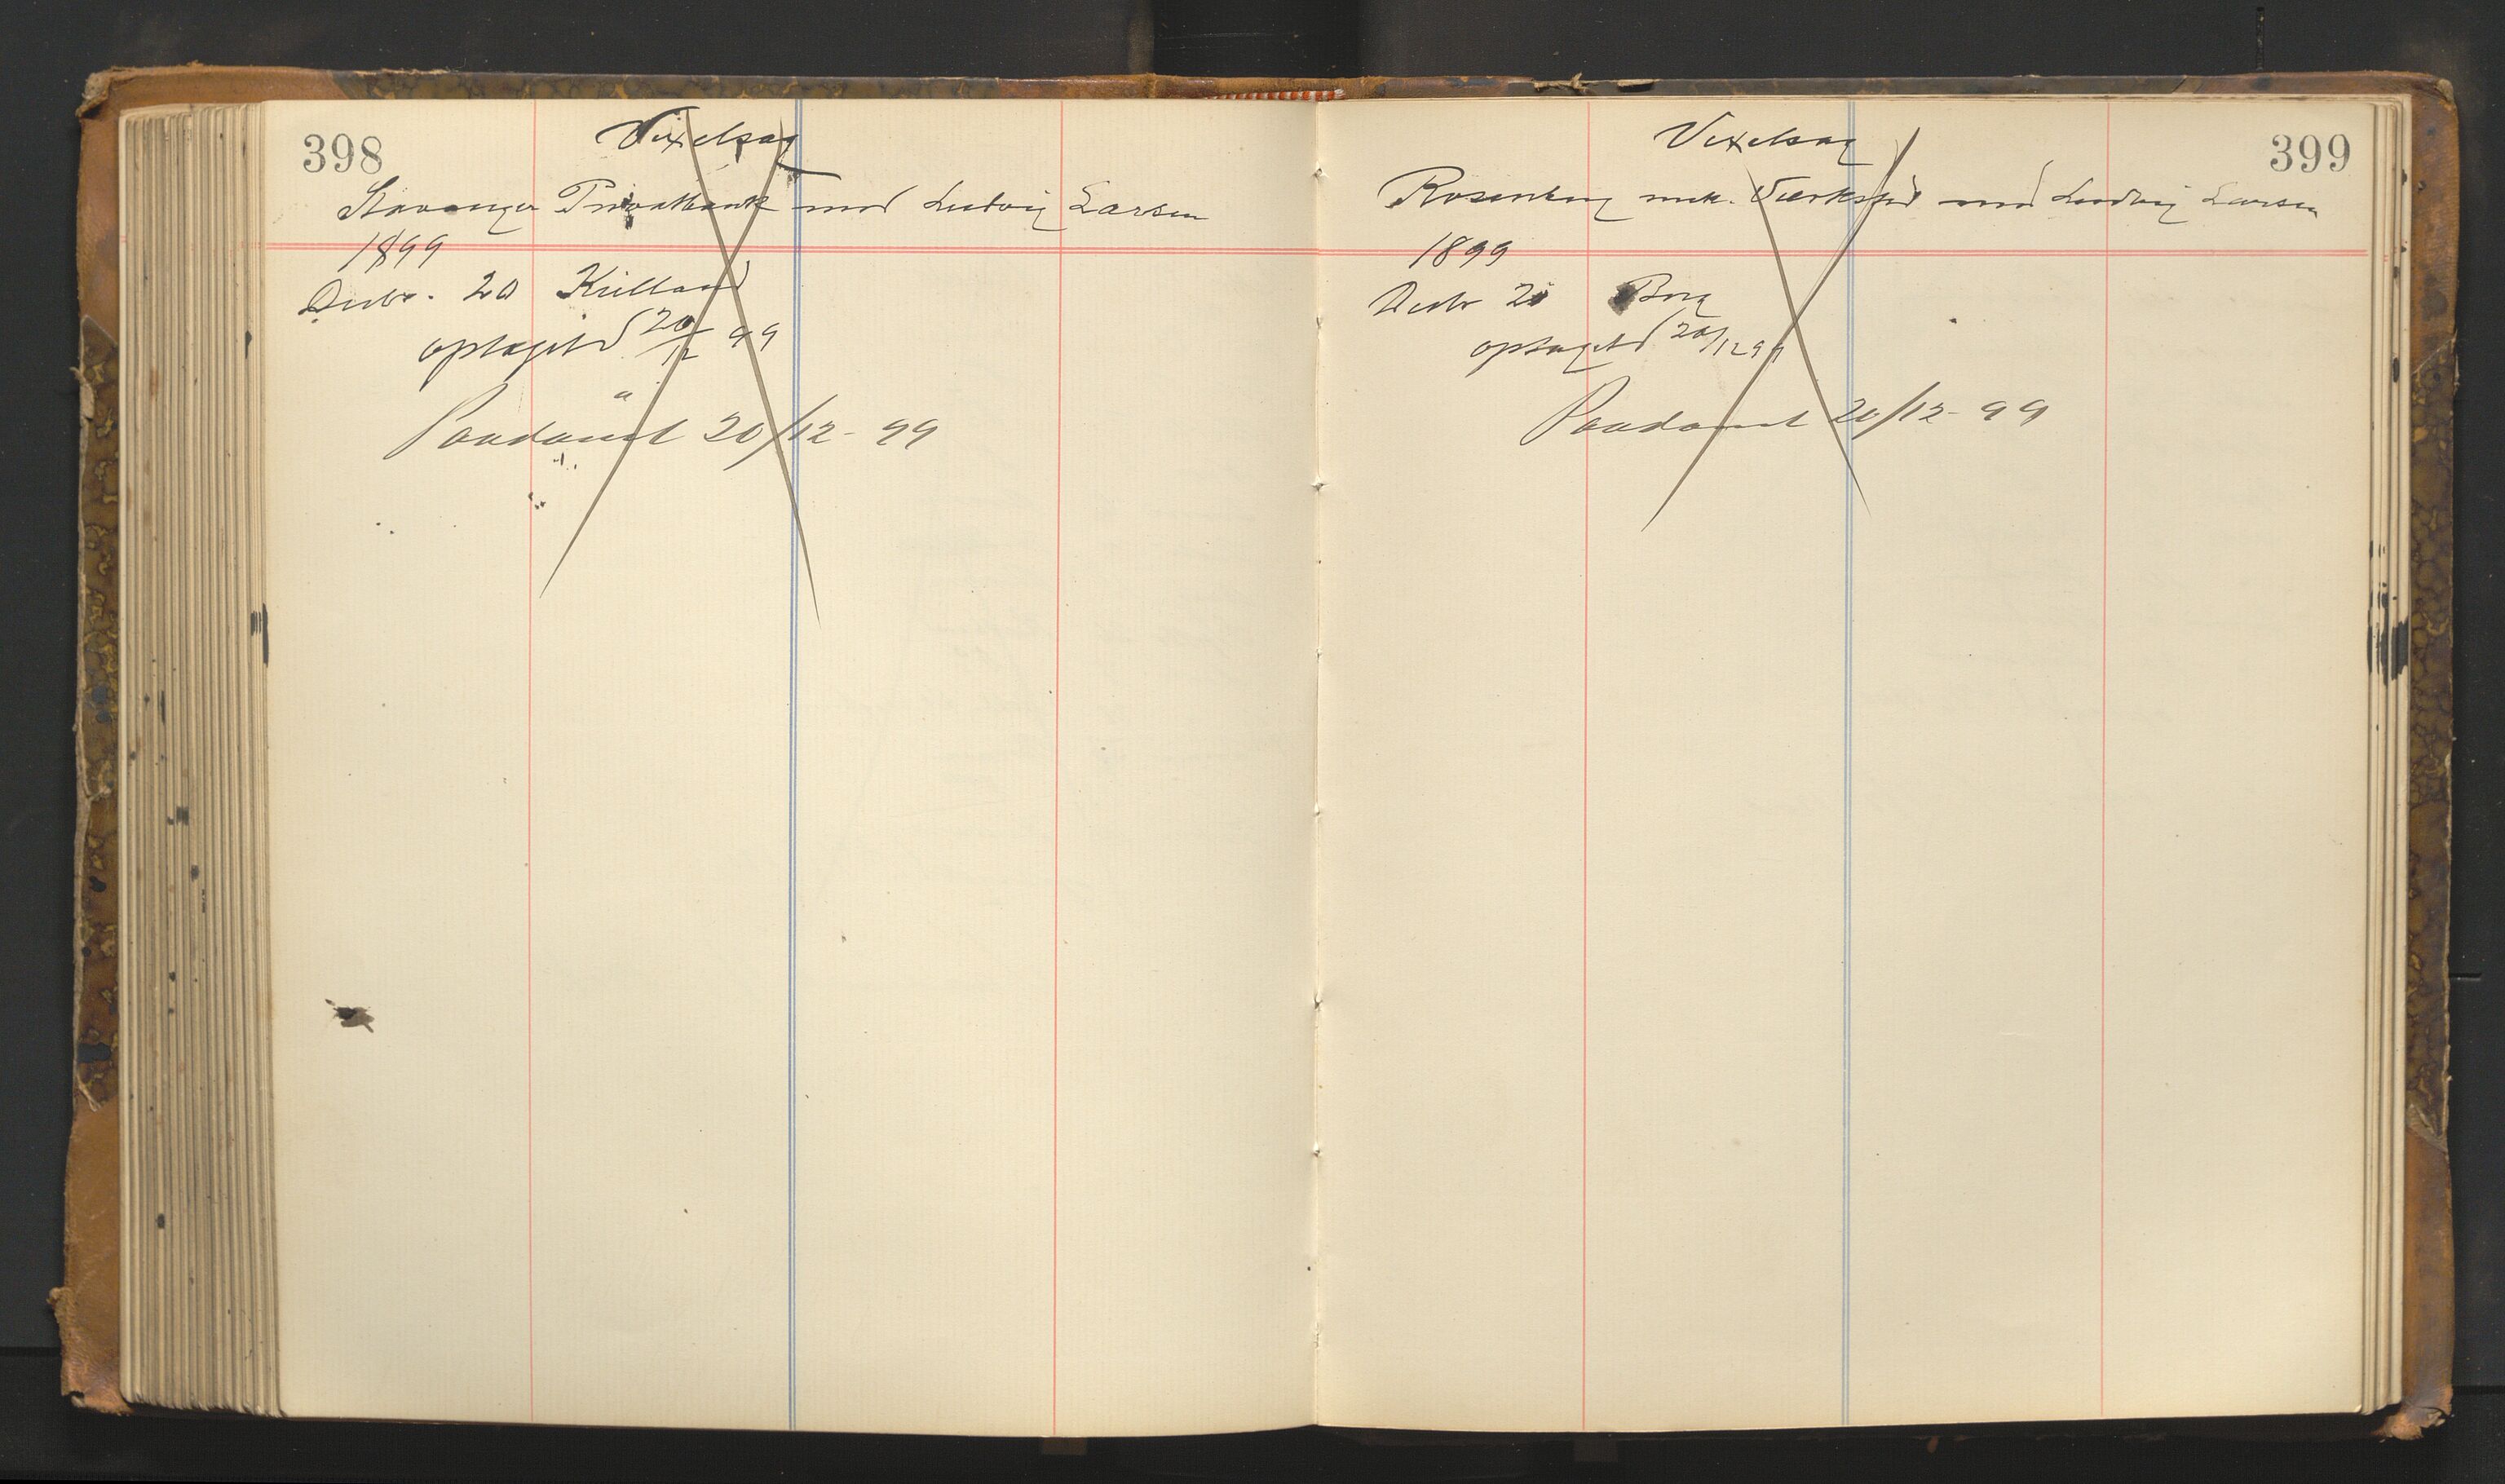 398
Vexelsag
Stavanger Privatbank mod Ludvig Larsen
1899
Decbr. 20 Kielland
optaget 20/12 99
Paadømt 20/12 - 99
399
Vexelsag
Rosenberg mek. Værksted mod Ludvig Larsen
1899
Decbr 20 Berg
optaget 20/12 99
Paadømt 20/12 - 99